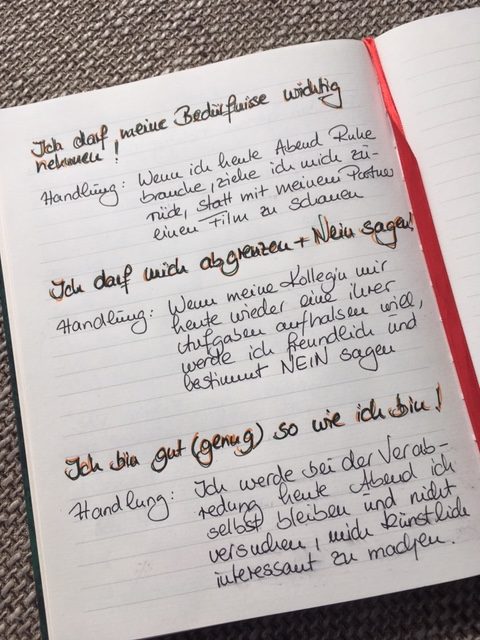 Ich darf meine Bedürfnisse wichtig
nehmen!
Handlung: Wenn ich heute Abend Ruhe
brauche, ziehe ich mich zu-
rück, statt mit meinem Partner
einen Film zu schauen
Ich darf mich abgrenzen + Nein sagen!
Handlung: Wenn meine Kollegin mir
heute wieder eine ihrer
Aufgaben aufhalsen will,
werde ich freundlich und
bestimmt NEIN sagen
Ich bin gut (genug) so wie ich bin!
Handlung: Ich werde bei der Verab-
redung heute Abend ich
selbst bleiben und nicht
versuchen, mich künstlich
interessant zu machen.